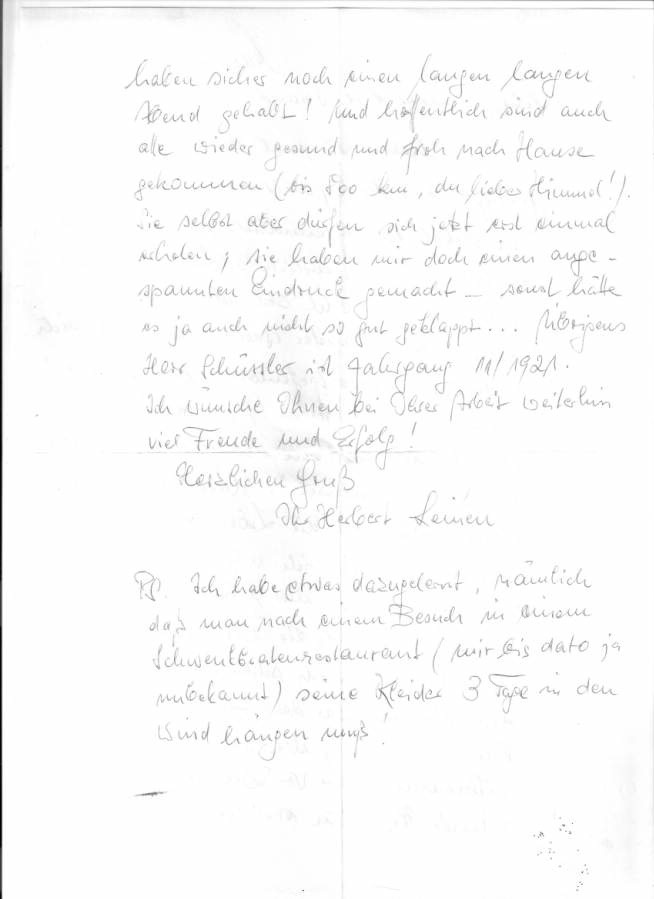 haben sicher noch einen langen langen
Abend gehabt! Und hoffentlich sind auch
alle wieder gesund und froh nach Hause
gekommen (bis 800 km, du lieber Himmel!).
Sie selbst aber dürfen sich jetzt erst einmal
erholen, sie haben mir doch einen ange-
spannten Eindruck gemacht – sonst hätte
es ja auch nicht so gut geklappt... Übrigens
Herr Schüssler ist Jahrgang 11/1921.
Ich wünsche Ihnen bei Ihrer Arbeit weiterhin
viel Freude und Erfolg!
Herzlichen Gruß
Ihr Herbert Leinen
PS. Ich habe etwas dazugelernt, nämlich
daß man nach einem Besuch in einem
Schwenkbratenrestaurant (mir bis dato ja
unbekannt) seine Kleider 3 Tage in den
Wind hängen muß!